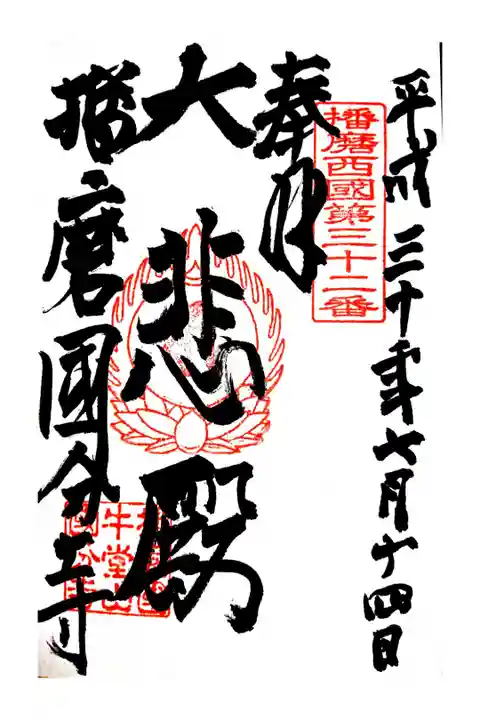 平成三十年七月十四日
播磨西國第三十二番
奉拝
大悲殿
播磨國分寺
牛堂山
國分寺